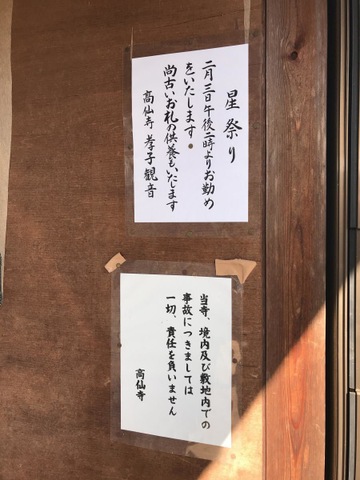 星祭り
二月三日午後二時よりお勤め
をいたします。
尚古いお札の供養もいたします
高仙寺 孝子観音
当寺、境内及び敷地内での
事故につきましては
一切、責任を負いません
高仙寺